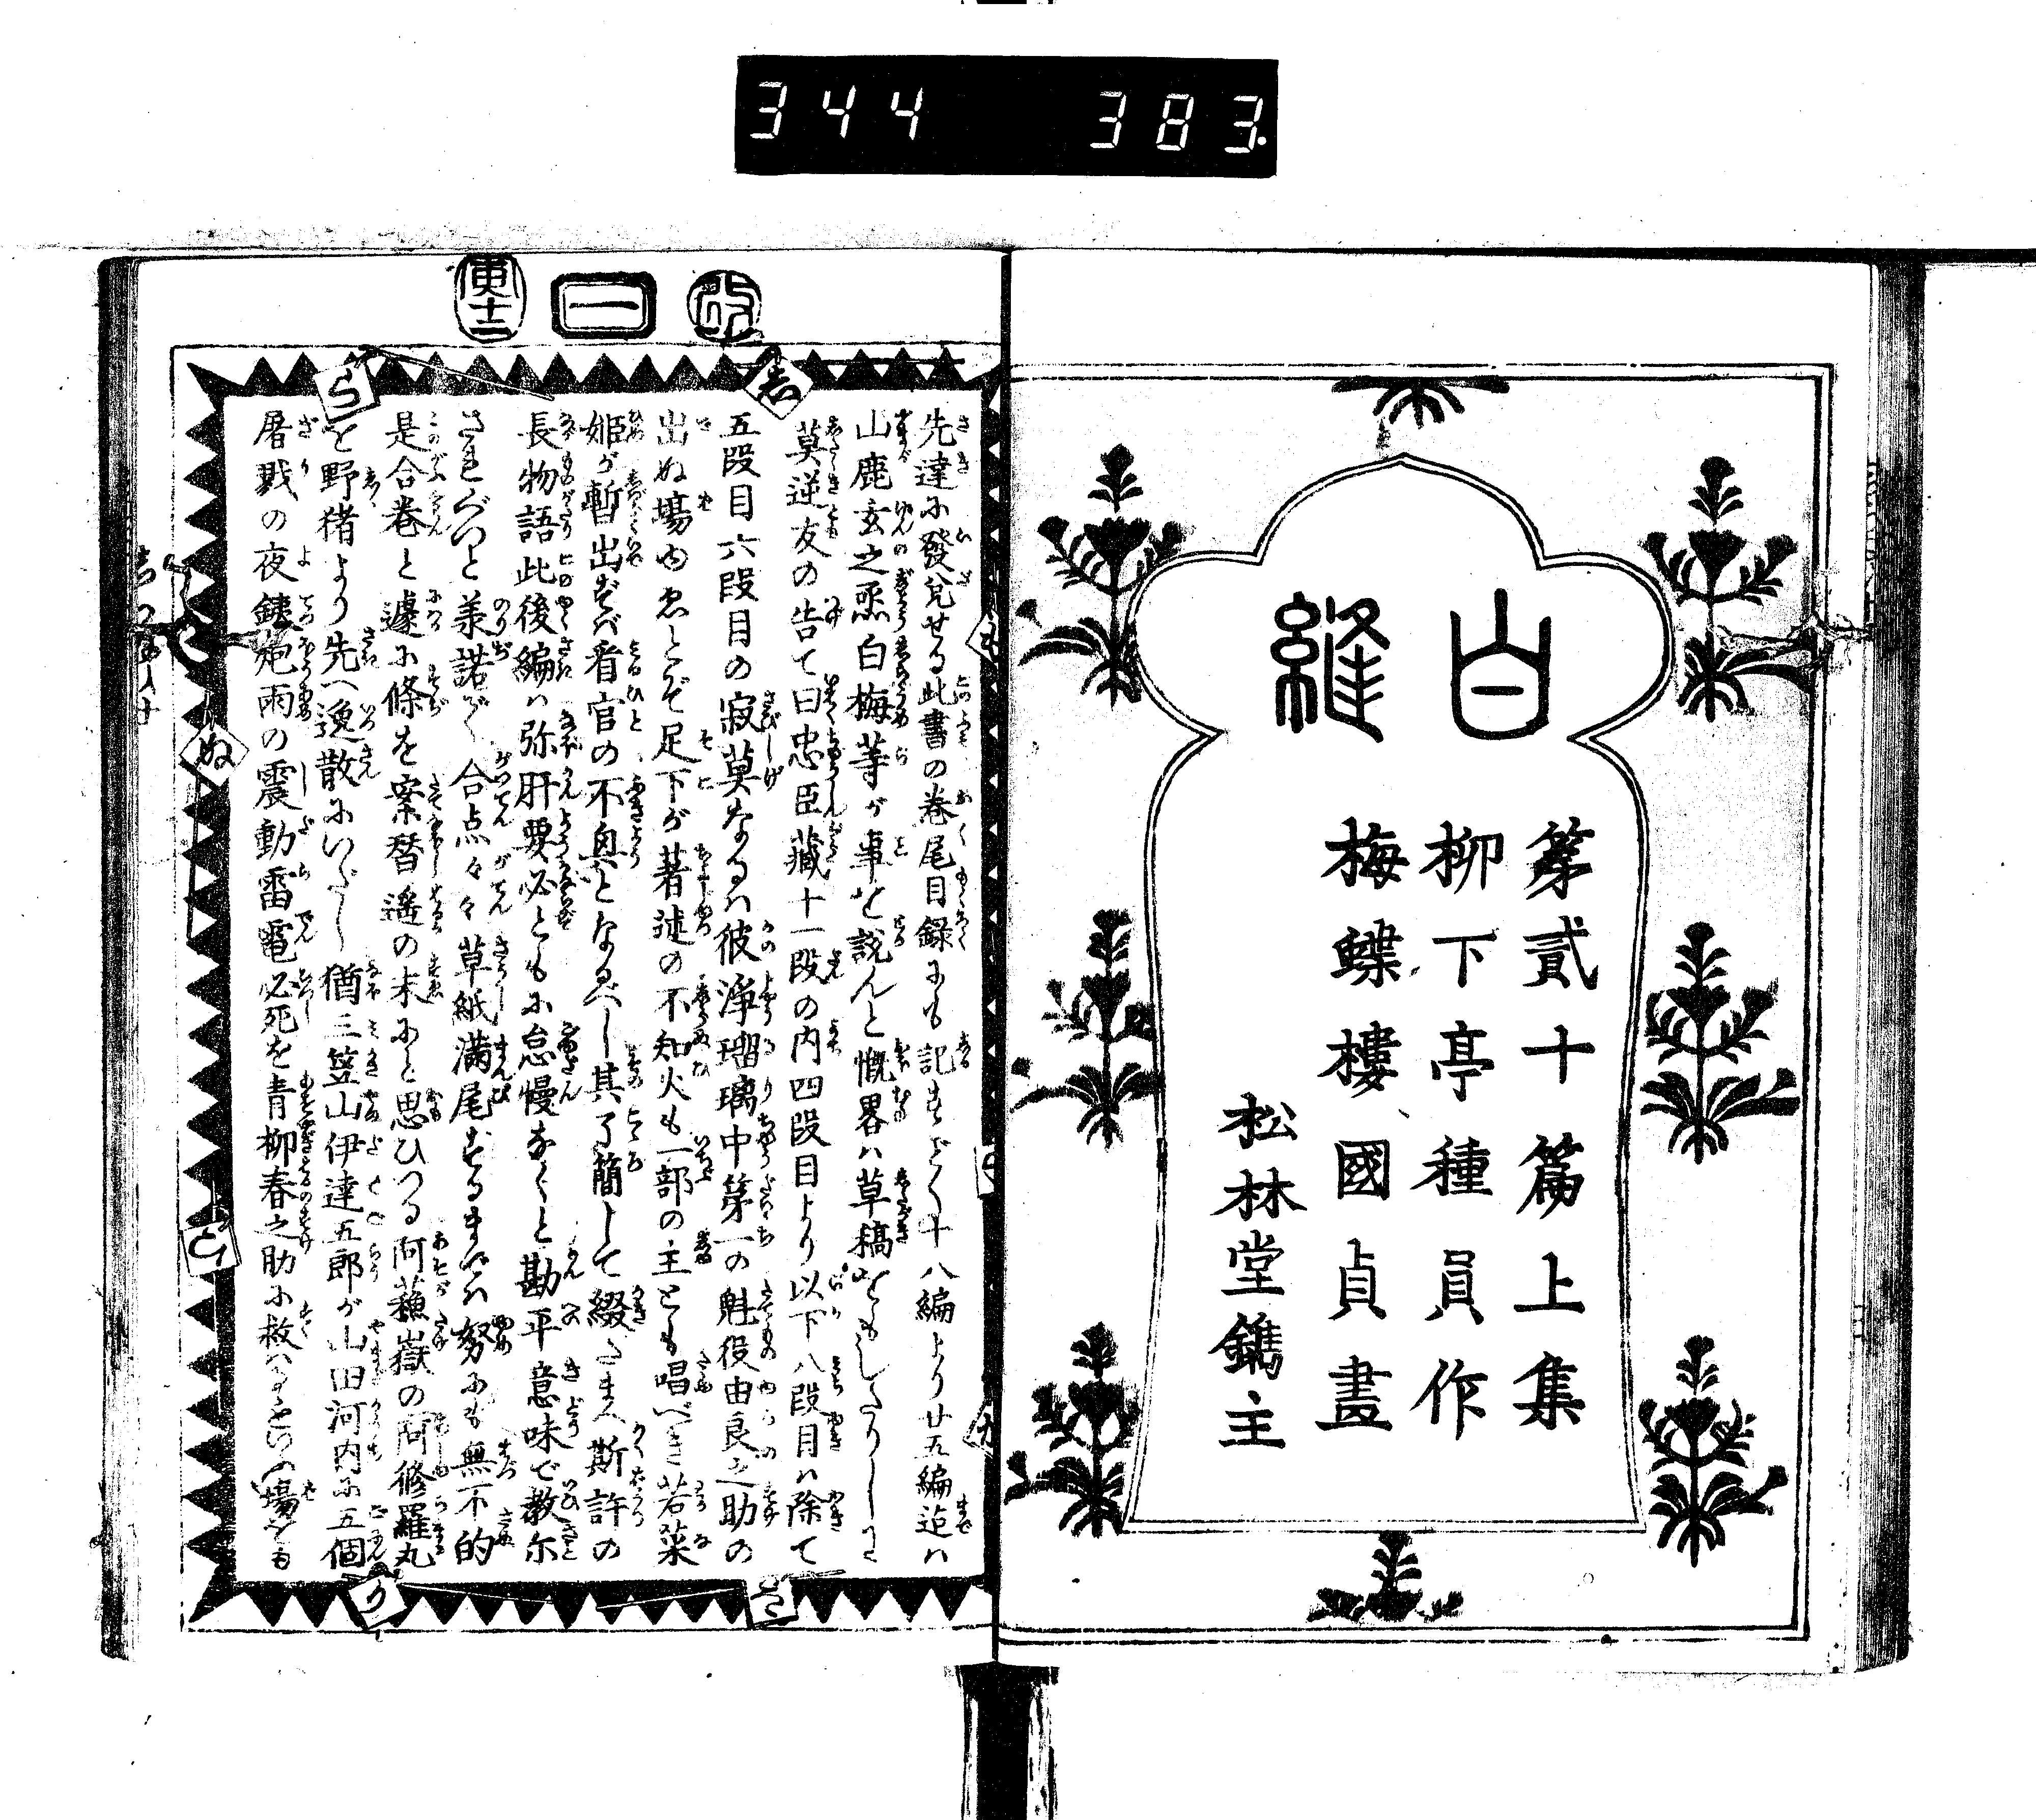 344 383.
白
縫
第貳十篇上集
柳下亭種員作
梅蝶樓國貞畫
松林堂鐫主
改
一
寅十二
先達に發兌せる此書の巻尾目録にも記すごく十八編より廿五編迠ハ
山鹿玄之烝白梅等が事を説んと慨畧ハ草稿をもしたりしに
莫逆友の告て曰忠臣藏十一段の内四段目より以下八段目ハ除て
五段目六段目の寂莫なるハ彼浄瑠璃中第一の魁役由良之助の
出ぬ場ゆゑとぞ足下が著述の不知火も一部の主とも唱べき若菜
姫が暫出ずバ看官の不興となるべし其了簡して綴たまへ斯許の
長物語此後編ハ弥肝要必ともに怠慢なくと勘平意味で教尓
是合巻と遽に條を案替遙の末にと思ひつる阿蘓嶽の阿修羅丸
と野猪より先へ逸散にいだし猶三笠山伊達五郎が山田河内に五個
屠戮の夜銕炮雨の震動雷電必死を青柳春之助に救